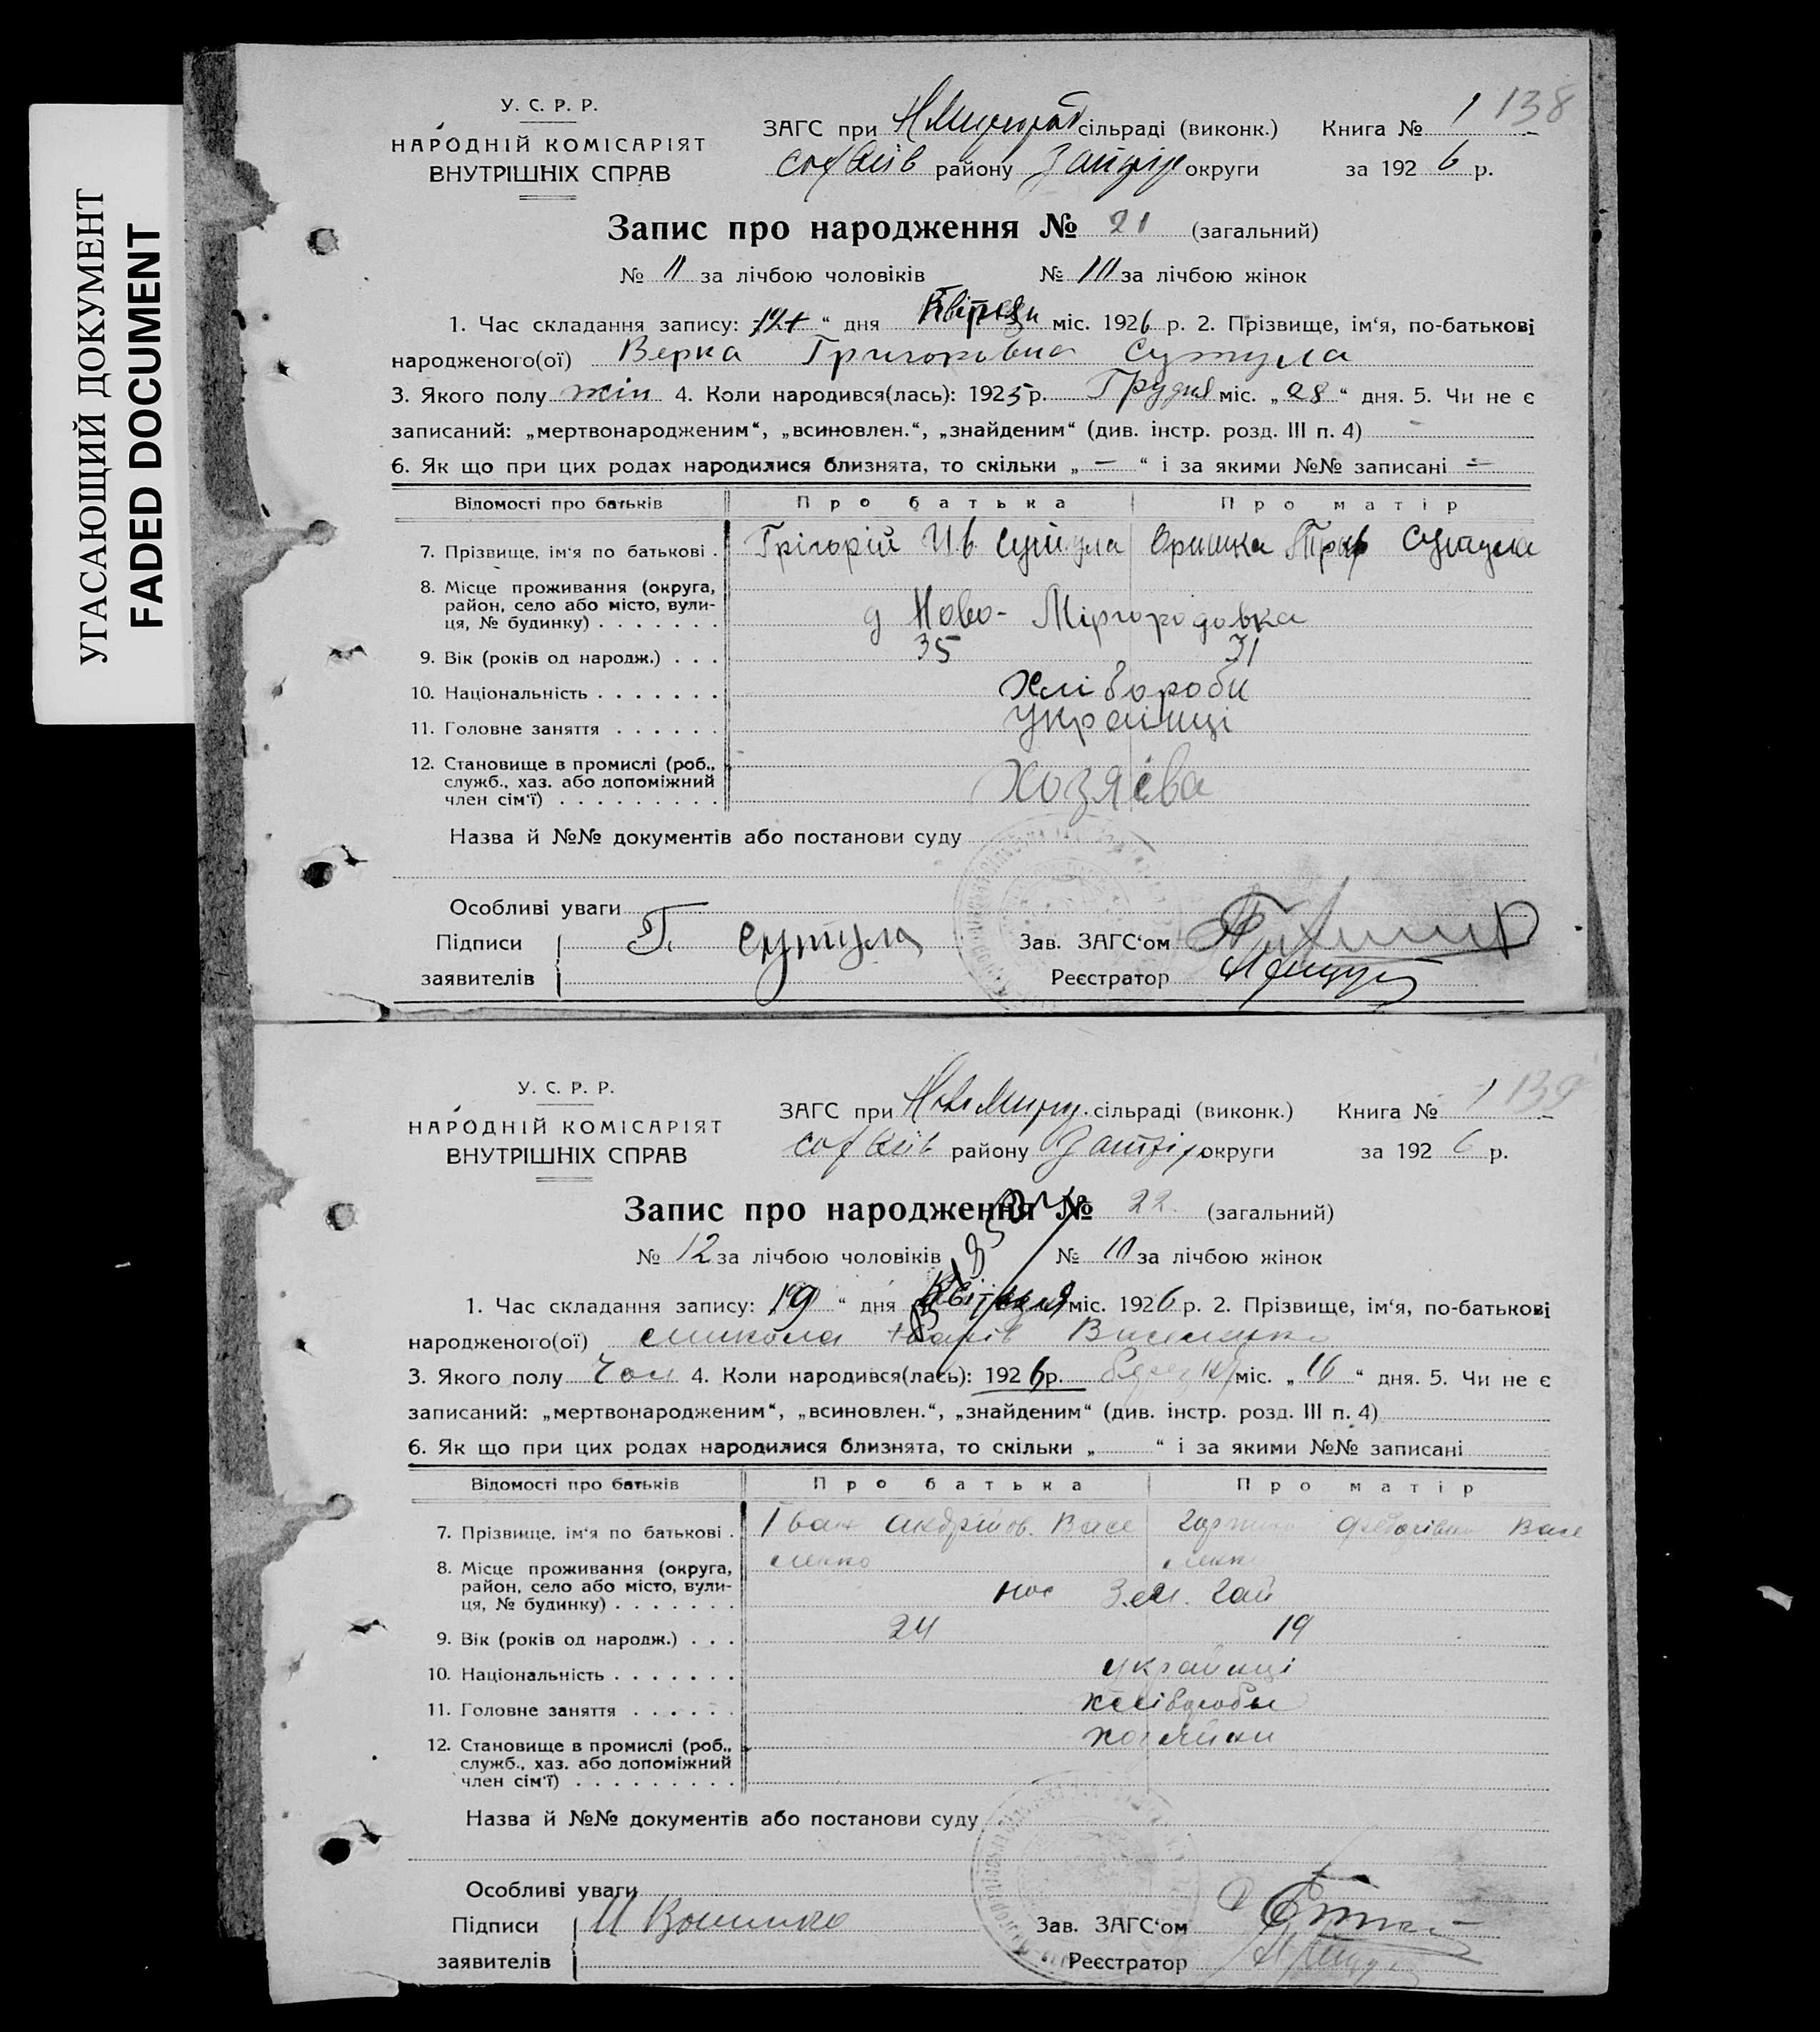 УГАСАЮЩИЙ ДОКУМЕНТ
FADED DOCUMENT
У. С. Р. Р.
НАРОДНІЙ КОМІСАРІЯТ
ВНУТРІШНІХ СПРАВ
ЗАГС при Н Миргород сільраді (виконк.) Книга № 1 138
софіїв району округи за 192 6 р.
Запис про народження № 21 (загальний)
№ 11 за лічбою чоловіків № 10 за лічбою жінок
1. Час складання запису: “ дня Квітня міс. 1926 р. 2. Прізвище, ім‘я, по-батькові
народженого(ої) Верка Григоровна Сутула
3. Якого полу жін 4. Коли народився(лась): 1925 р. Грудня міс. „ 28 “ дня. 5. Чи не є
записаний: „мертвонародженим“, „всиновлен.“, „знайденим“ (див. інстр. розд. III п. 4) -
6. Як що при цих родах народилися близнята, то скільки „ — “ і за якими №№ записані —
Відомості про батьків Про батька Про матір
7. Прізвище, ім‘я по батькові . Грігорій Ив Сутула Оришка Сутула
8. Місце проживання (округа,
район, село або місто, вули-
ця, № будинку) . . . . . . . д Ново- Міргородовка
9. Вік (років од народж.) . . . 35 31
10. Національність . . . . . . . Хлібороби
11. Головне заняття . . . . . . Українці
12. Становище в промислі (роб.,
служб., хаз. або допоміжний
член сім‘ї) . . . . . . . . . Хозяєва
Назва й №№ документів або постанови суду
Особливі уваги
Підписи Г. Сутула Зав. ЗАГС‘ом
заявителів Реєстратор
У. С. Р. Р.
НАРОДНІЙ КОМІСАРІЯТ
ВНУТРІШНІХ СПРАВ
ЗАГС при сільраді (виконк.) Книга № 1 139
софіїв району округи за 192 6 р.
Запис про народження № 22 (загальний)
№ 12 за лічбою чоловіків № 10 за лічбою жінок
1. Час складання запису: 19 “ дня Квітня міс. 1926 р. 2. Прізвище, ім‘я, по-батькові
народженого(ої) Микола Василенко
3. Якого полу Чол 4. Коли народився(лась): 1926 р. березня міс. „ 16 “ дня. 5. Чи не є
записаний: „мертвонародженим“, „всиновлен.“, „знайденим“ (див. інстр. розд. III п. 4)
6. Як що при цих родах народилися близнята, то скільки „ “ і за якими №№ записані
Відомості про батьків Про батька Про матір
7. Прізвище, ім‘я по батькові . Іван Андрійов. Васе Васе
ленко ленко
8. Місце проживання (округа,
район, село або місто, вули-
ця, № будинку) . . . . . . . пос Зел. Гай
9. Вік (років од народж.) . . . 24 19
10. Національність . . . . . . . українці
11. Головне заняття . . . . . . хліборобы
12. Становище в промислі (роб., хозяйни
служб., хаз. або допоміжний
член сім‘ї) . . . . . . . . .
Назва й №№ документів або постанови суду
Особливі уваги
Підписи Зав. ЗАГС‘ом
заявителів Реєстратор